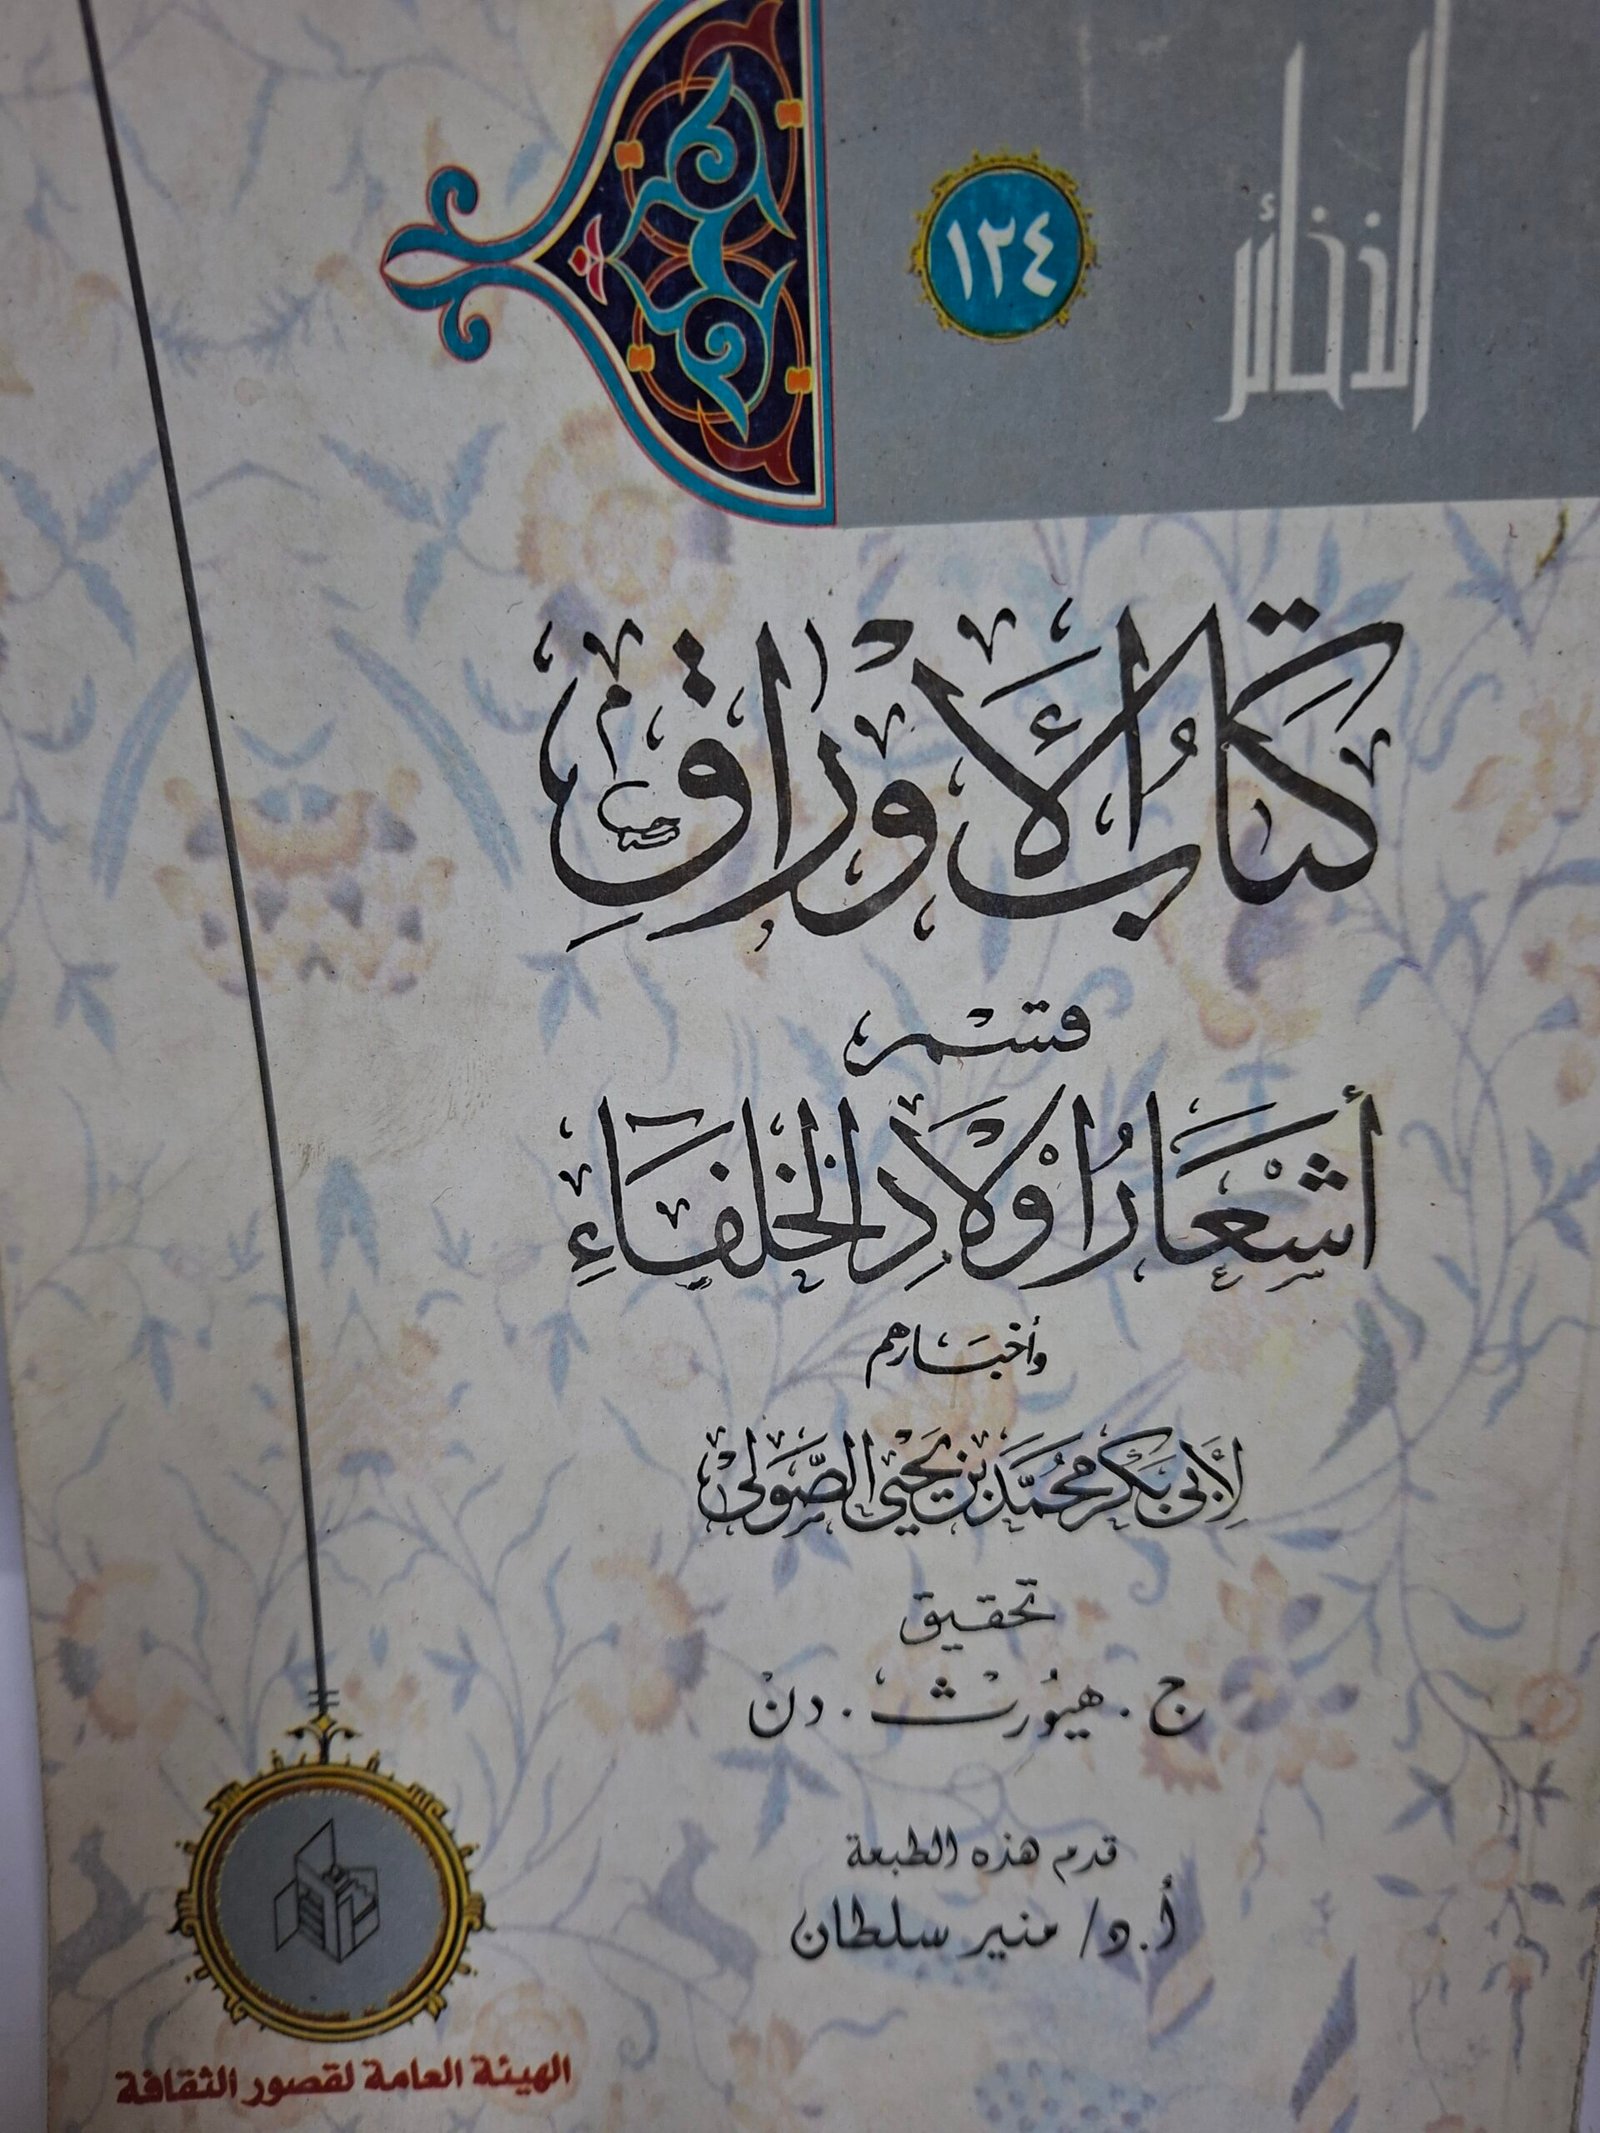 الذخائر
١٢٤
كِتَابُ الأَوْرَاقِ
قسم
أَشْعَارُ أَوْلَادِ الْخُلَفَاءِ
وأخبارهم
لِأَبِى بَكْر مُحَمَّد بْن يَحْيَى الصُّولِى
تحقيق
ج . هيُورث . دن
قدم هذه الطبعة
أ.د/ منير سلطان
الهيئة العامة لقصور الثقافة